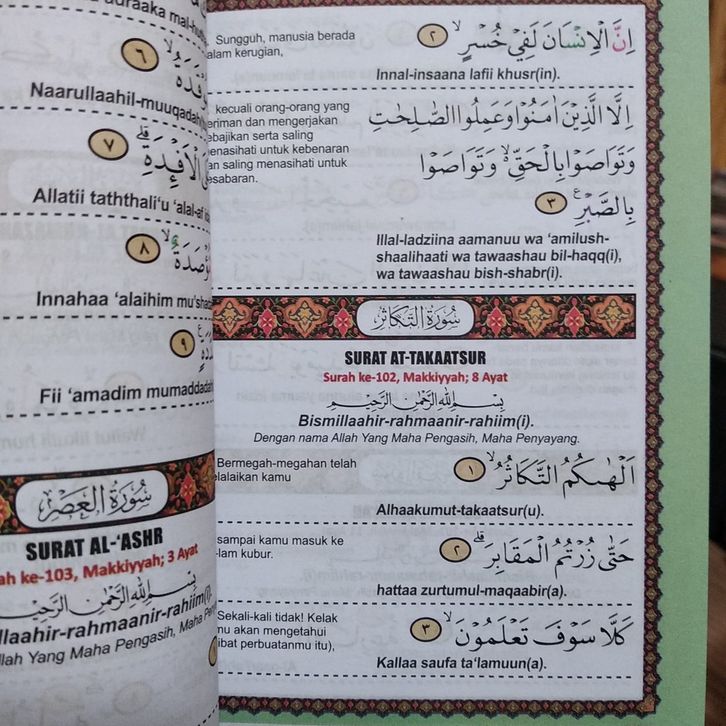 ٦
Naarullaahil-muuqadah
٧
الْأَفْـِٕدَةِۗ
Allatii taththali‘u ‘alal-af
٨
Innahaa ‘alaihim mu’sha
٩
Fii ‘amadim mumaddadah
سُوْرَةُ الْعَصْرِ
SURAT AL-‘ASHR
ke-103, Makkiyyah; 3 Ayat
بِسْمِ اللّٰهِ الرَّحْمٰنِ الرَّحِيْمِ
rahmaanir-rahiim(i).
Yang Maha Pengasih, Maha
اِنَّ الْاِنْسَانَ لَفِيْ خُسْرٍ ۙ ٢
Sungguh, manusia berada
kerugian,
Innal-insaana lafii khusr(in).
اِلَّا الَّذِيْنَ اٰمَنُوْا وَعَمِلُوا الصّٰلِحٰتِ
وَتَوَاصَوْا بِالْحَقِّ ۙ وَتَوَاصَوْا
بِالصَّبْرِ ࣖ ٣
kecuali orang-orang yang
dan mengerjakan
serta saling
untuk kebenaran
saling menasihati untuk
Illal-ladziina aamanuu wa ‘amilush-
shaalihaati wa tawaashau bil-haqq(i),
wa tawaashau bish-shabr(i).
سُوْرَةُ التَّكَاثُرِ
SURAT AT-TAKAATSUR
Surah ke-102, Makkiyyah; 8 Ayat
بِسْمِ اللّٰهِ الرَّحْمٰنِ الرَّحِيْمِ
Bismillaahir-rahmaanir-rahiim(i).
Dengan nama Allah Yang Maha Pengasih, Maha Penyayang.
اَلْهٰىكُمُ التَّكَاثُرُۙ ١
Bermegah-megahan telah
kamu
Alhaakumut-takaatsur(u).
حَتّٰى زُرْتُمُ الْمَقَابِرَۗ ٢
sampai kamu masuk ke
kubur.
hattaa zurtumul-maqaabir(a).
كَلَّا سَوْفَ تَعْلَمُوْنَۙ ٣
Sekali-kali tidak! Kelak
akan mengetahui
perbuatanmu itu),
Kallaa saufa ta‘lamuun(a).